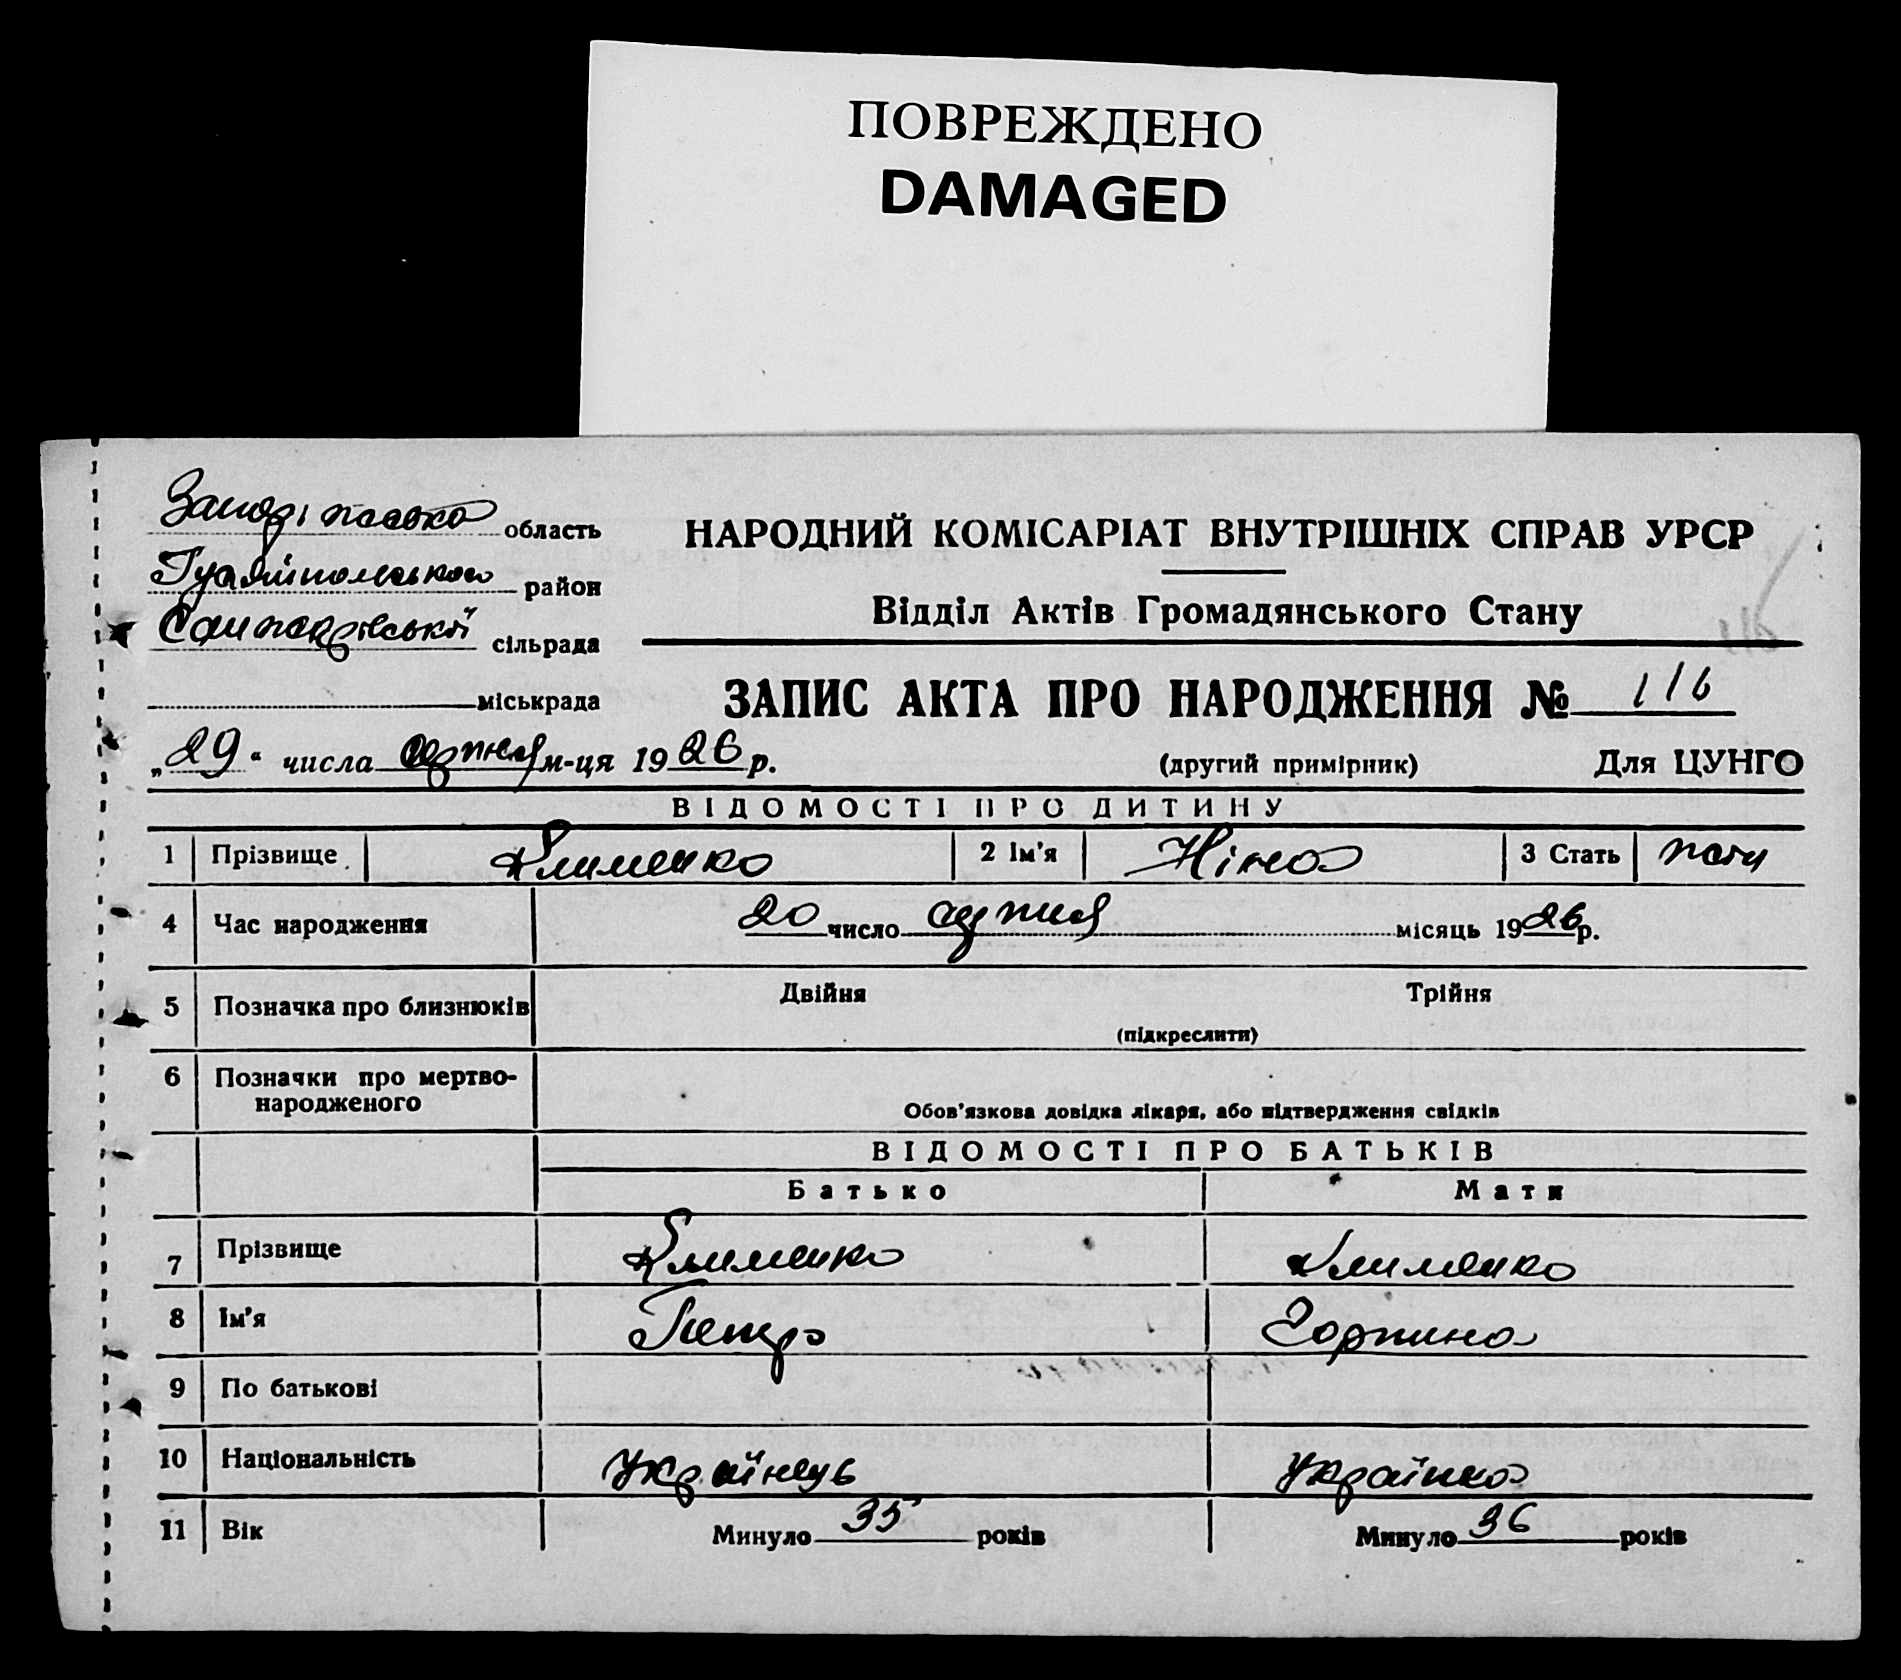 ПОВРЕЖДЕНО
DAMAGED
область
Гуляйпольського район
сільрада
міськрада
НАРОДНИЙ КОМІСАРІАТ ВНУТРІШНІХ СПРАВ УРСР
Відділ Актів Громадянського Стану
ЗАПИС АКТА ПРО НАРОДЖЕННЯ № 116
„29“ числа серпня м-ця 1926 р.
(другий примірник) Для ЦУНГО
ВІДОМОСТІ ПРО ДИТИНУ
1 Прізвище Клименко 2 Ім'я Ніна 3 Стать
4 Час народження 20 число серпня місяць 1926 р.
5 Позначка про близнюків Двійня Трійня
(підкреслити)
6 Позначки про мертво-
народженого
Обов'язкова довідка лікаря, або підтвердження свідків
ВІДОМОСТІ ПРО БАТЬКІВ
Батько Мати
7 Прізвище Клименко Клименко
8 Ім'я Петро Горпина
9 По батькові
10 Національність Українець Українка
11 Вік Минуло 35 років Минуло 36 років